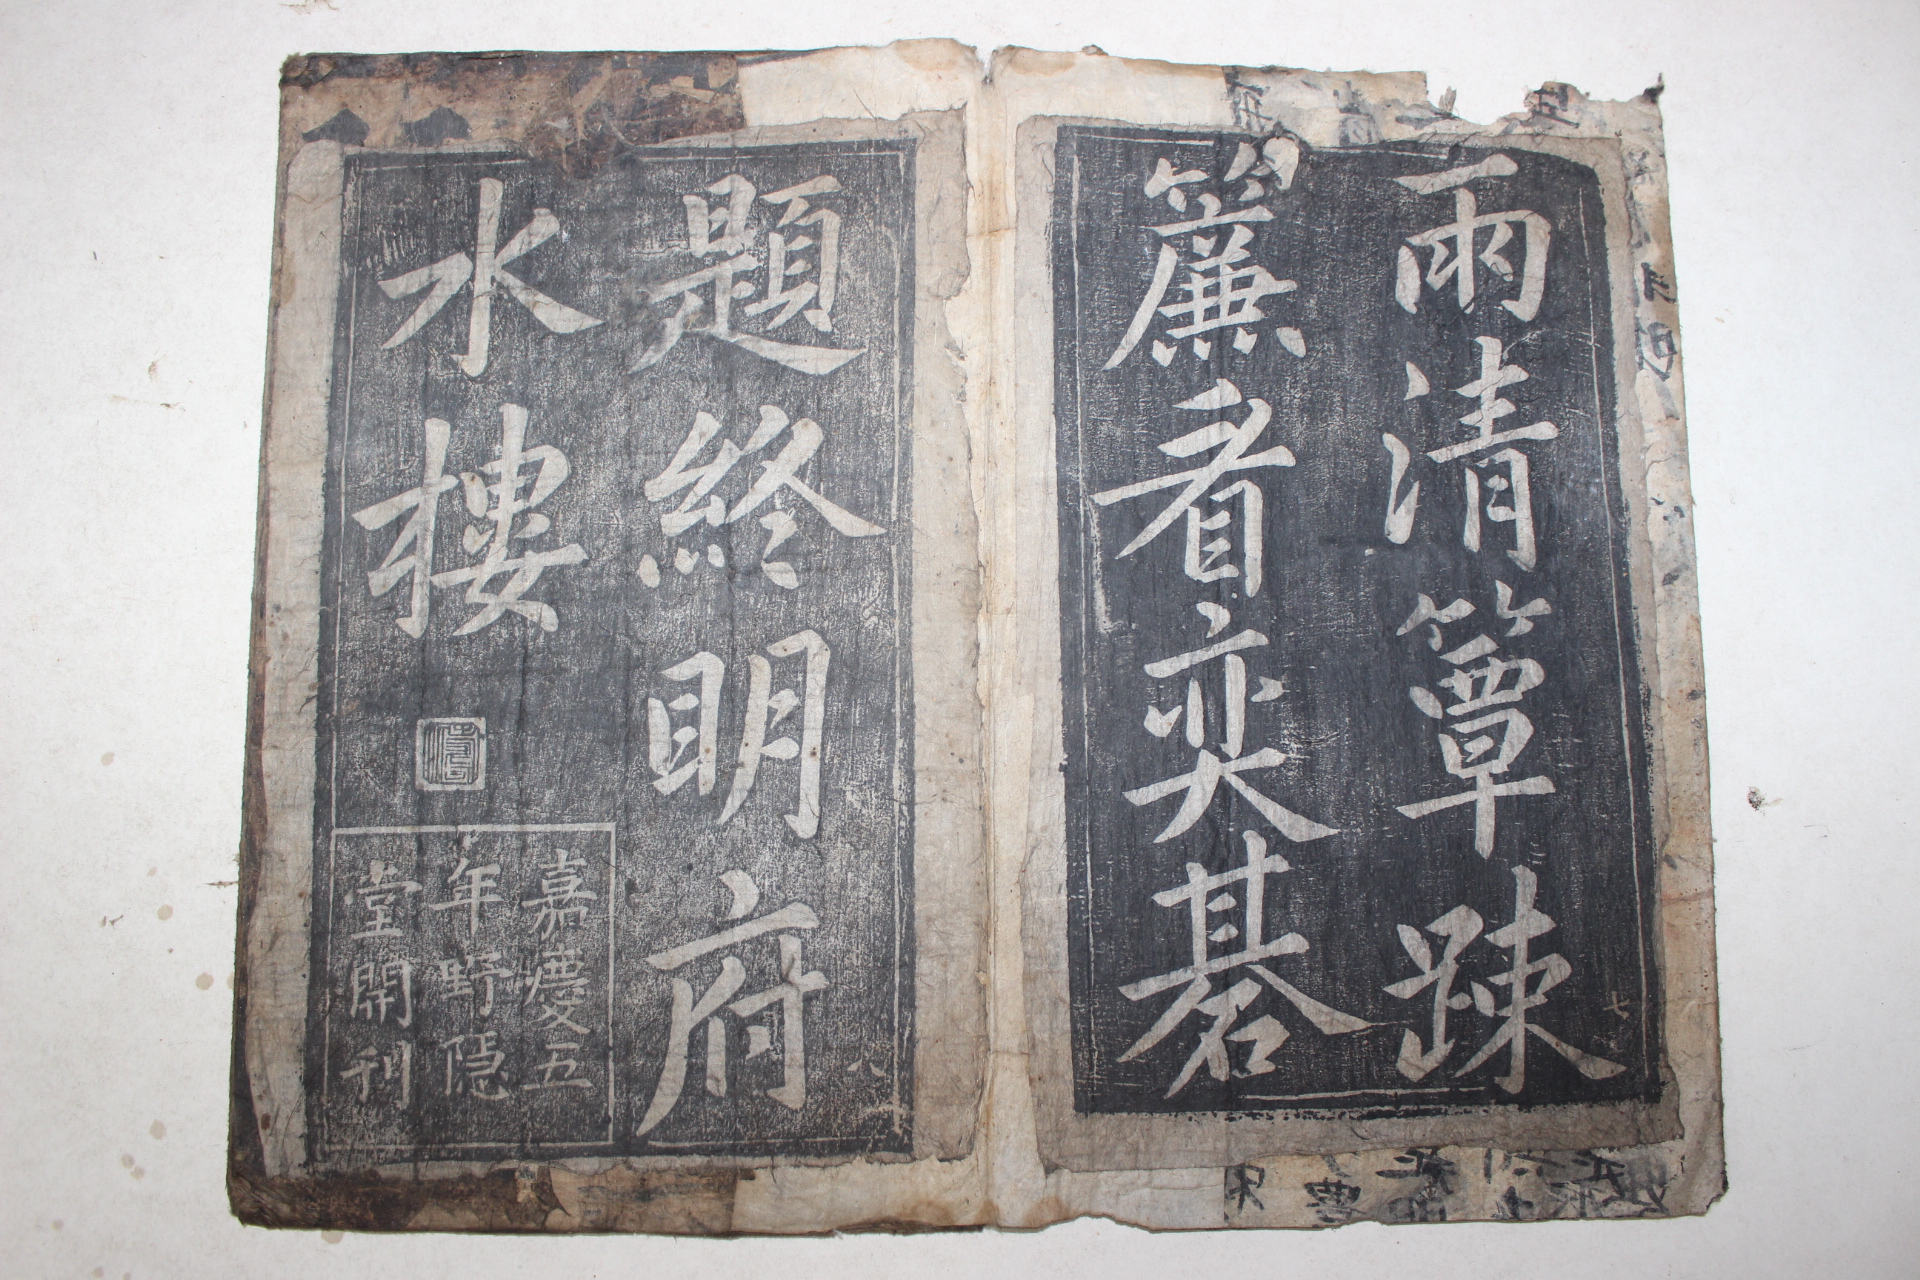 雨清簟踈
簾看奕碁
七
題終明府
水樓
嘉慶五
年野隱
堂開刊
八